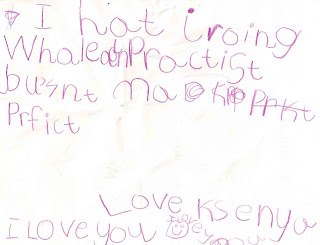 I hat iroing
Whale Practist
busnt ma
Prfict
Love Ksenya
I Love you